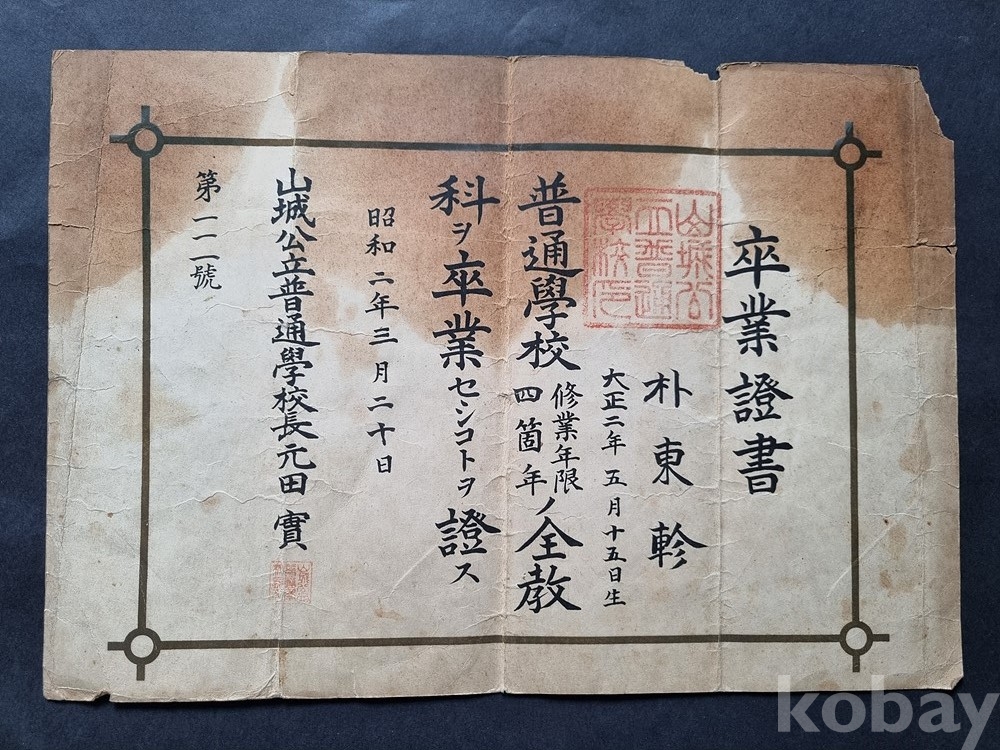 卒業證書
山城公
立普通
學校印
朴東軫
大正二年五月十五日生
普通學校修業年限四箇年ノ全教
科ヲ卒業セシコトヲ證ス
昭和二年三月二十日
山城公立普通學校長元田實
第一一一號
kobay